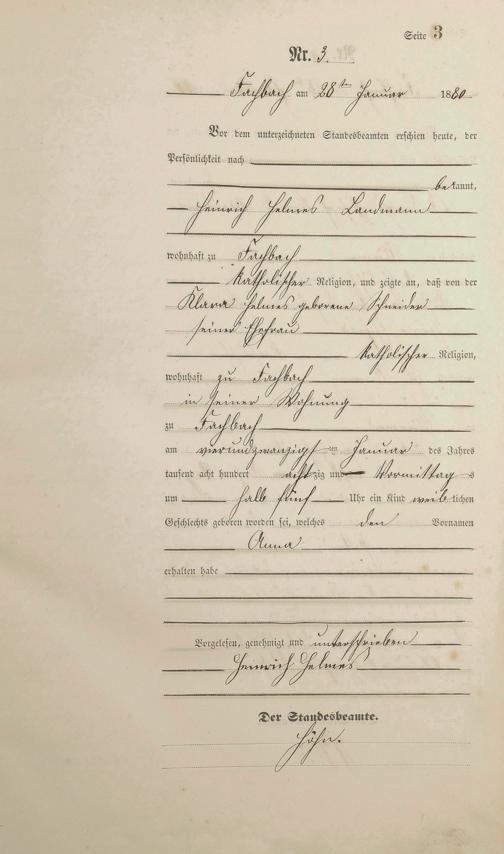 Seite 3
Nr. 3.
Fachbach am 28ten Januar 1880
Vor dem unterzeichneten Standesbeamten erschien heute, der
Persönlichkeit nach
bekannt,
Heinrich Helmes Landmann
wohnhaft zu Fachbach
katholischer Religion, und zeigte an, daß von der
Klara Helmes geborene Schneider
seiner Ehefrau
katholischer Religion,
wohnhaft zu Fachbach
in seiner Wohnung
zu Fachbach
am vierundzwanzigst en Januar des Jahres
tausend acht hundert achtzig und Vormittag s
um halb fünf Uhr ein Kind weiblichen
Geschlechts geboren worden sei, welches den Vornamen
Anna
erhalten habe
Vorgelesen, genehmigt und unterschrieben
Heinrich Helmes
Der Standesbeamte.
Höhn.